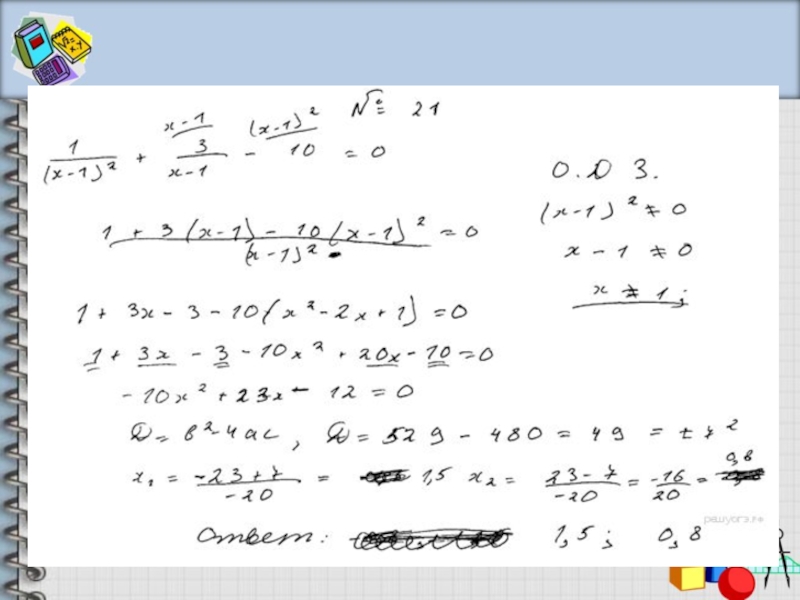 № 21
x-1 (x-1)²
1/(x-1)² + 3/(x-1) - 10 = 0
О.Д З.
(x-1)² ≠ 0
(1 + 3(x-1) - 10(x-1)²)/(x-1)² = 0
x - 1 ≠ 0
x ≠ 1;
1 + 3x - 3 - 10(x² - 2x + 1) = 0
1 + 3x - 3 - 10x² + 20x - 10 = 0
- 10x² + 23x - 12 = 0
D = b² - 4ac, D = 529 - 480 = 49 = ± 7²
x₁ = (-23+7)/(-20) = 1,5 x₂ = (23-7)/(-20) = -16/20 = 0,8
Ответ: 1,5; 0,8
решуогэ.рф